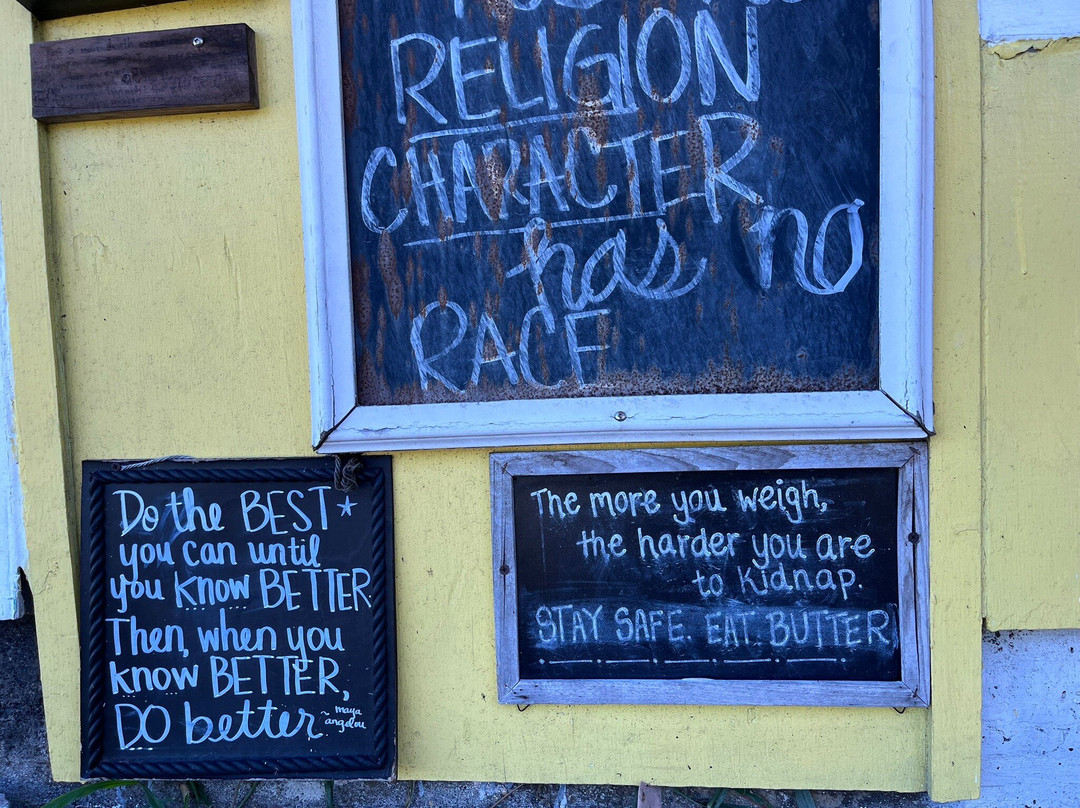 RELIGION
CHARACTER
has no
RACE
Do the BEST
you can until
you know BETTER.
Then, when you
know BETTER,
DO better
~ maya
angelou
The more you weigh,
the harder you are
to kidnap.
STAY SAFE. EAT BUTTER